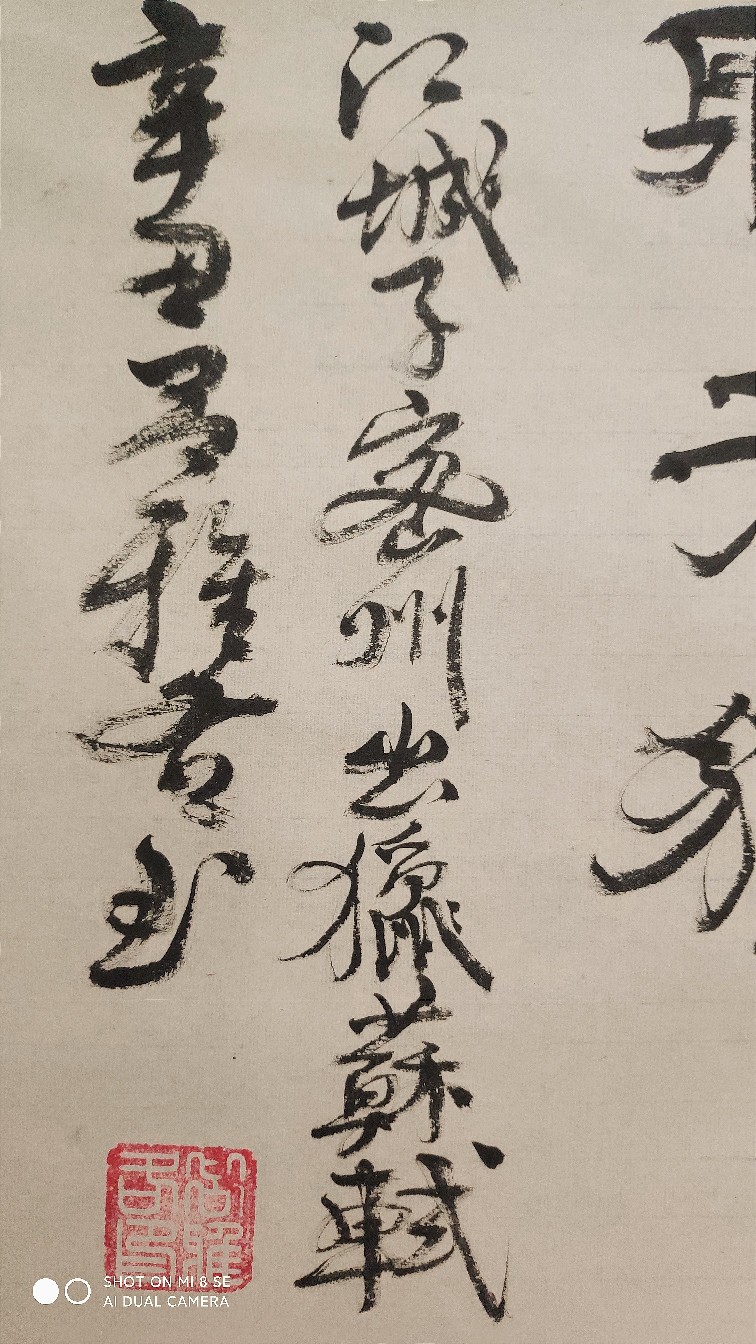 江城子密州出獵蘇軾
辛丑 雅 书
SHOT ON MI 8 SE
AI DUAL CAMERA